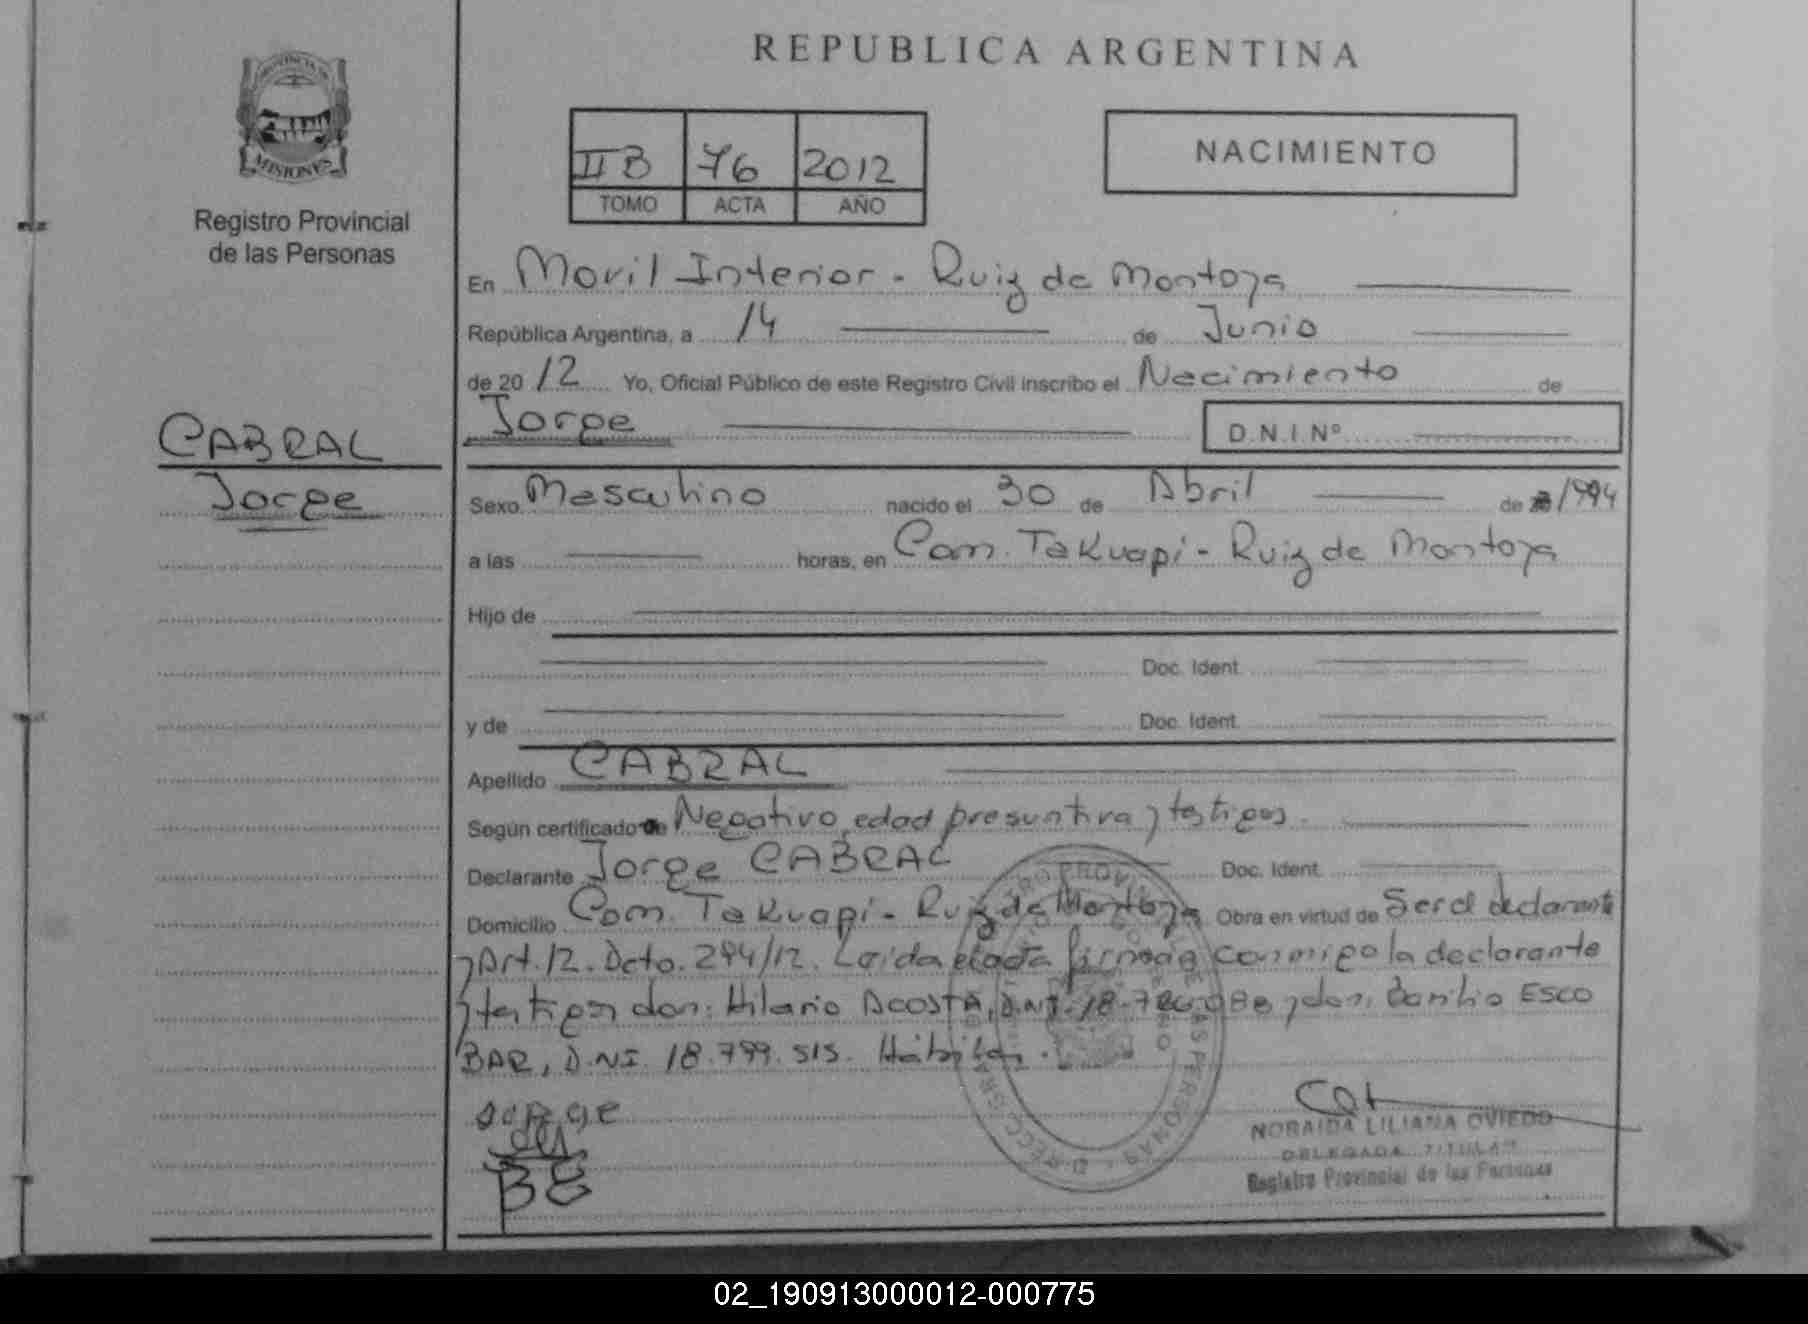 REPUBLICA ARGENTINA
PROVINCIA DE
MISIONES
Registro Provincial
de las Personas
II B 76 2012
TOMO ACTA AÑO
NACIMIENTO
En Movil Interior - Ruiz de Montoya
República Argentina, a 14 de Junio
de 2012 Yo, Oficial Público de este Registro Civil inscribo el Nacimiento de
Jorge D.N.I.Nº
CABRAL
Jorge
Sexo Masculino nacido el 30 de Abril de 1994
a las horas, en Com. Takuapi - Ruiz de Montoya
Hijo de
Doc. Ident.
y de Doc. Ident.
Apellido CABRAL
Según certificado de Negativo, edad presuntiva y testigos.
Declarante Jorge CABRAL Doc. Ident.
Domicilio Com. Takuapi - Ruiz de Montoya Obra en virtud de Ser el declarante
y Art. 12. Dcto. 294/12. Leida el acta firman conmigo la declarante
y testigos don: Hilario ACOSTA, D.NI. y don. ESCO
BAR, D.NI. 18.799.515. Hábiles.
Jorge
BE
NORAIDA LILIANA OVIEDO
DELEGADA TITULAR
Registro Provincial de las Personas
02_190913000012-000775